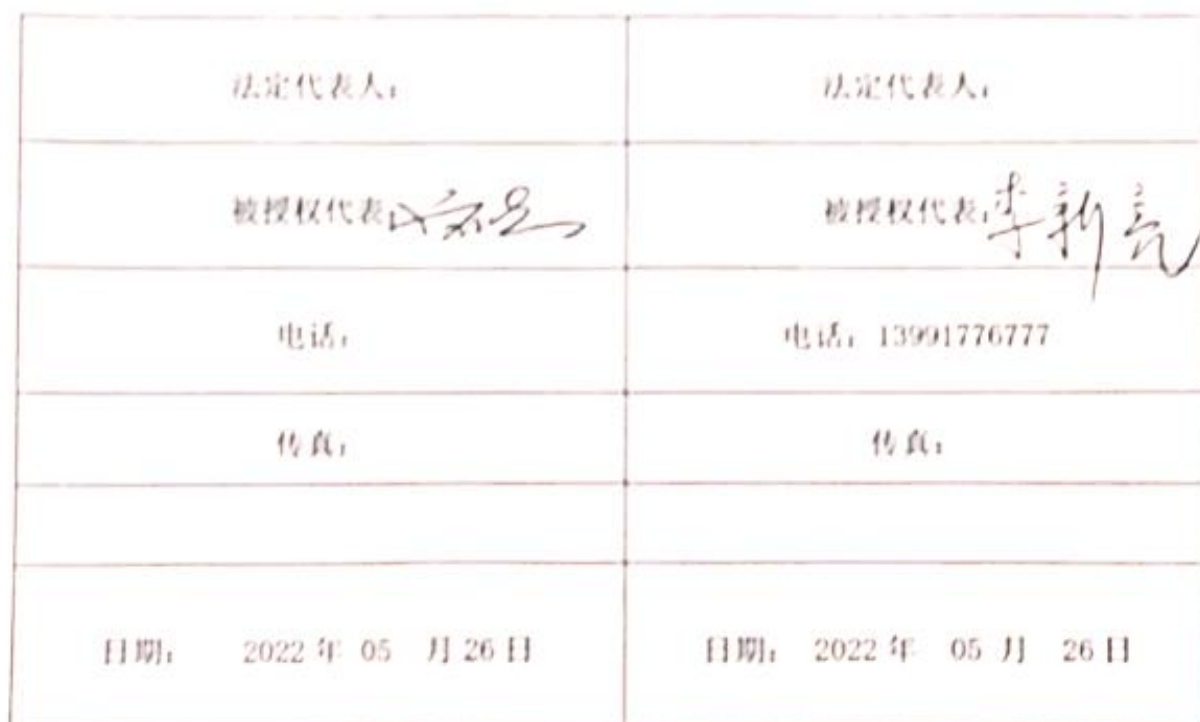 法定代表人: 法定代表人:
被授权代表: 被授权代表: 李新亮
电话: 电话: 13991776777
传真: 传真:
日期: 2022年 05 月26日 日期: 2022年 05月 26日